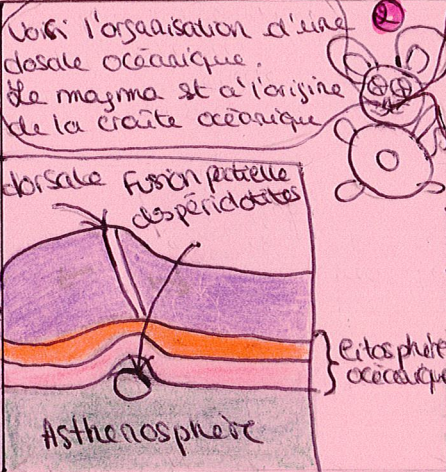 2
Voici l'organisation d'une
dosale océanique.
Le magma est à l'origine
de la croûte océanique
dorsale
Fusion partielle
des péridotites
Litosphère
océanique
Asthenosphère